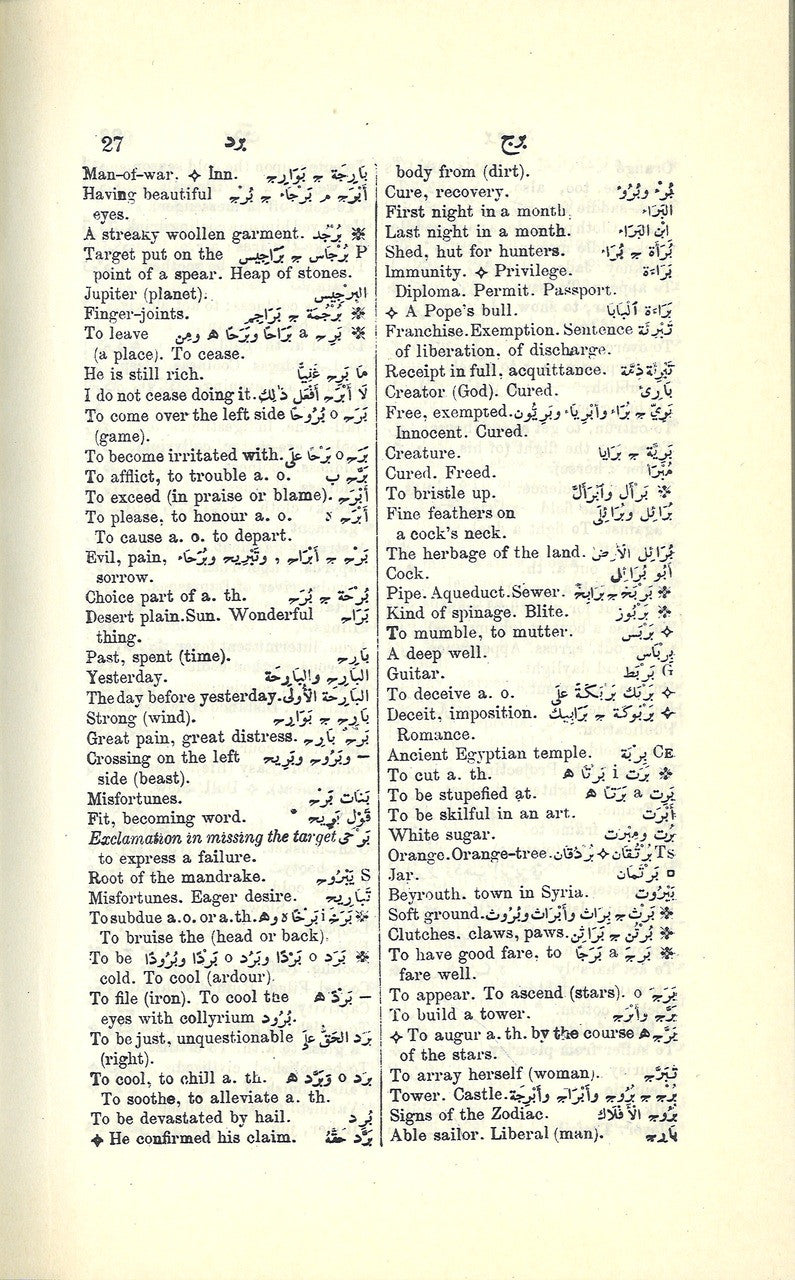 27 برد برج
body from (dirt).
Cure, recovery. بُرْء وبُرُوء
First night in a month. البَرَاء
Last night in a month. ابْن البَرَاء
Shed, hut for hunters. بُرْأَة ج بُرَأ
Immunity. ✧ Privilege. بَرَاءَة
Diploma. Permit. Passport.
✧ A Pope's bull. بَرَاءَة الْبَابَا
Franchise. Exemption. Sentence تَبْرِئَة
of liberation, of discharge.
Receipt in full, acquittance. تَبْرِئَة ذِمَّة
Creator (God). Cured. بَارِئ
Free, exempted. بَرِيْ ج بُرَآء وأَبْرِيَاء وبَرِيْئُون
Innocent. Cured.
Creature. بَرِيَّة ج بَرَايَا
Cured. Freed. مُبَرَّأ
To bristle up. بَرْأَل وٱبْرَأَلَّ ※
Fine feathers on بُرَائِل وبُرَائِلَى
a cock's neck.
The herbage of the land. بُرَائِل الأَرْض
Cock. أَبُو بُرَائِل
Pipe. Aqueduct. Sewer. بَرْبَخ ج بَرَابِخ ※
Kind of spinage. Blite. بَرْبُوز ※
To mumble, to mutter. بَرْبَس ✧
A deep well. بِرْبَاس
Guitar. بَرْبَط G
To deceive a. o. بَرْبَك بَرْبَكَةً عَلَى ✧
Deceit, imposition. بَرْبُوكَة ج بَرَابِيك ✧
Romance.
Ancient Egyptian temple. بِرْبَة CE
To cut a. th. بَرَت i بَرْتًا ه ※
To be stupefied at. بَرِت a بَرَتًا ه
To be skilful in an art. أَبْرَت
White sugar. بُرْت ومِبْرَت
Orange. Orange-tree. بُرْتُقَان ✧ بُرْدُقَان Ts
Jar. بَرْتَمَان □
Beyrouth. town in Syria. بَيْرُوت
Soft ground. بَرْث ج بِرَاث وأَبْرَاث وبُرُوث ※
Clutches. claws, paws. بُرْثُن ج بَرَاثِن ※
To have good fare, to بَرِج a بَرَجًا ※
fare well.
To appear. To ascend (stars). بَرَج o
To build a tower. بَرَّج وأَبْرَج
✧ To augur a. th. by the course بَرَّج ه
of the stars.
To array herself (woman). تَبَرَّج
Tower. Castle. بُرْج ج بُرُوج وأَبْرَاج وأَبْرِجَة
Signs of the Zodiac. بُرُوج الأَفْلَاك
Able sailor. Liberal (man). بَارِج
Man-of-war. ✧ Inn. بَارِجَة ج بَوَارِج
Having beautiful أَبْرَج م بَرْجَاء ج بُرْج
eyes.
A streaky woollen garment. بُرْجُد ※
Target put on the بُرْجَاس ج بَرَاجِيس P
point of a spear. Heap of stones.
Jupiter (planet). البِرْجِيس
Finger-joints. بُرْجُمَة ج بَرَاجِم ※
To leave بَرِح a بَرَاحًا وبَرَحًا ه ومِن ※
(a place). To cease.
He is still rich. مَا بَرِح غَنِيًّا
I do not cease doing it. لَا أَبْرَح أَفْعَل ذٰلِك
To come over the left side بَرَح o بُرُوحًا
(game).
To become irritated with. بَرَح o بَرْحًا عَلَى
To afflict, to trouble a. o. بَرَّح ب
To exceed (in praise or blame). أَبْرَح
To please, to honour a. o. أَبْرَح ه
To cause a. o. to depart.
Evil, pain, بَرْح ج أَبْرَاح , وتَبْرِيح وبُرَحَاء
sorrow.
Choice part of a. th. بُرْحَة ج بُرَح
Desert plain. Sun. Wonderful بَرَاح
thing.
Past, spent (time). بَارِح
Yesterday. البَارِح والبَارِحَة
The day before yesterday. البَارِحَة الأُولَى
Strong (wind). بَارِح ج بَوَارِح
Great pain, great distress. بَرْح بَارِح
Crossing on the left وبَرُوح وبَرِيح —
side (beast).
Misfortunes. بَنَات بَرْح
Fit, becoming word. قَوْل بَرِيح
Exclamation in missing the target بَرْحَى
to express a failure.
Root of the mandrake. يَبْرُوح S
Misfortunes. Eager desire. تَبَارِيح
To subdue a. o. or a. th. بَرَخ i بَرْخًا ه وه ※
To bruise the (head or back).
To be بَرَد o بَرْدًا وبَرُد o بَرْدًا وبُرُودًا ※
cold. To cool (ardour).
To file (iron). To cool the بَرْدًا ه —
eyes with collyrium بُرُود.
To be just, unquestionable بَرَد الحَقّ عَلَى
(right).
To cool, to chill a. th. بَرَد o وبَرَّد ه
To soothe, to alleviate a. th.
To be devastated by hail. بُرِد
✧ He confirmed his claim. بَرَّد حَقَّهُ